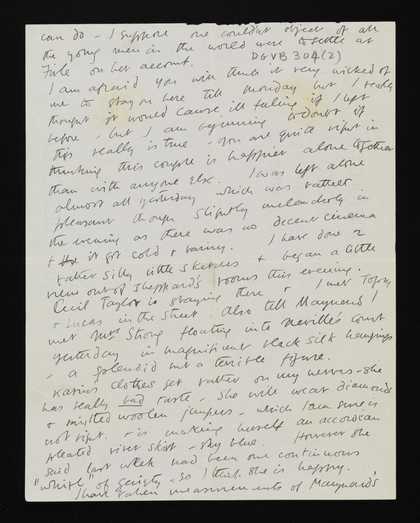 can do – I suppose one couldn't object if all
the young men in the world were to settle at
Firle on her account.
DGVB 304(2)
I am afraid you will think it very wicked of
me to stay on here till Monday but I really
thought it would cause ill feeling if I left
before, but I am beginning to doubt if
this really is true – you are quite right in
thinking this couple is happier alone together
than with anyone else. I was left alone
almost all yesterday which was rather
pleasant though slightly melancholy in
the evening as there was no decent cinema
+ it got cold + rainy. I have done 2
rather silly little sketches + began a little
view out of Sheppard's rooms this evening.
Cecil Taylor is staying there + I met Topsy
+ Lucas in the street. Also tell Maynard I
met Mrs Strong floating into Neville's court
yesterday in magnificent black silk hangings
– a splendid but a terrible figure.
Karins clothes get rather on my nerves – she
has really bad taste – she will wear diamonds
+ woolen jumpers – which I am sure is
not right – + is making herself an accordian
pleated skirt – sky blue. However she
said last week had been one continuous
"whirl" of gaiety – so I think she is happy.
I have taken measurements of Maynard's